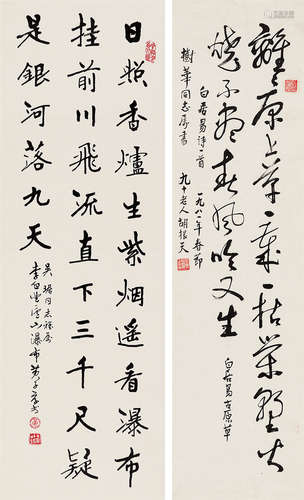 離離原上草一歲一枯榮野火
燒不盡春風吹又生
白居易古原草
白居易詩一首 一九八一年春節
樹華同志属書
九十老人胡根天
日照香爐生紫烟遥看瀑布
挂前川飛流直下三千尺疑
是銀河落九天
李白